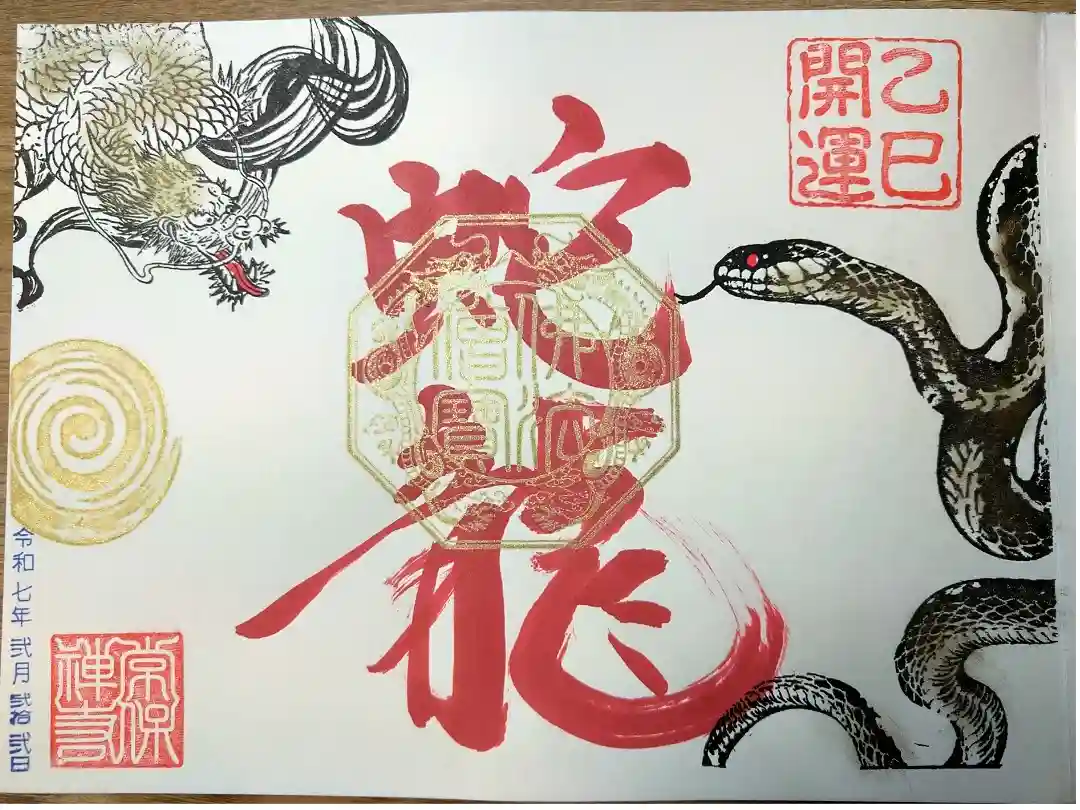 乙巳
開運
蛇龍
佛法
僧寶
令和七年 弐月 弐拾弐日
常保
禅寺